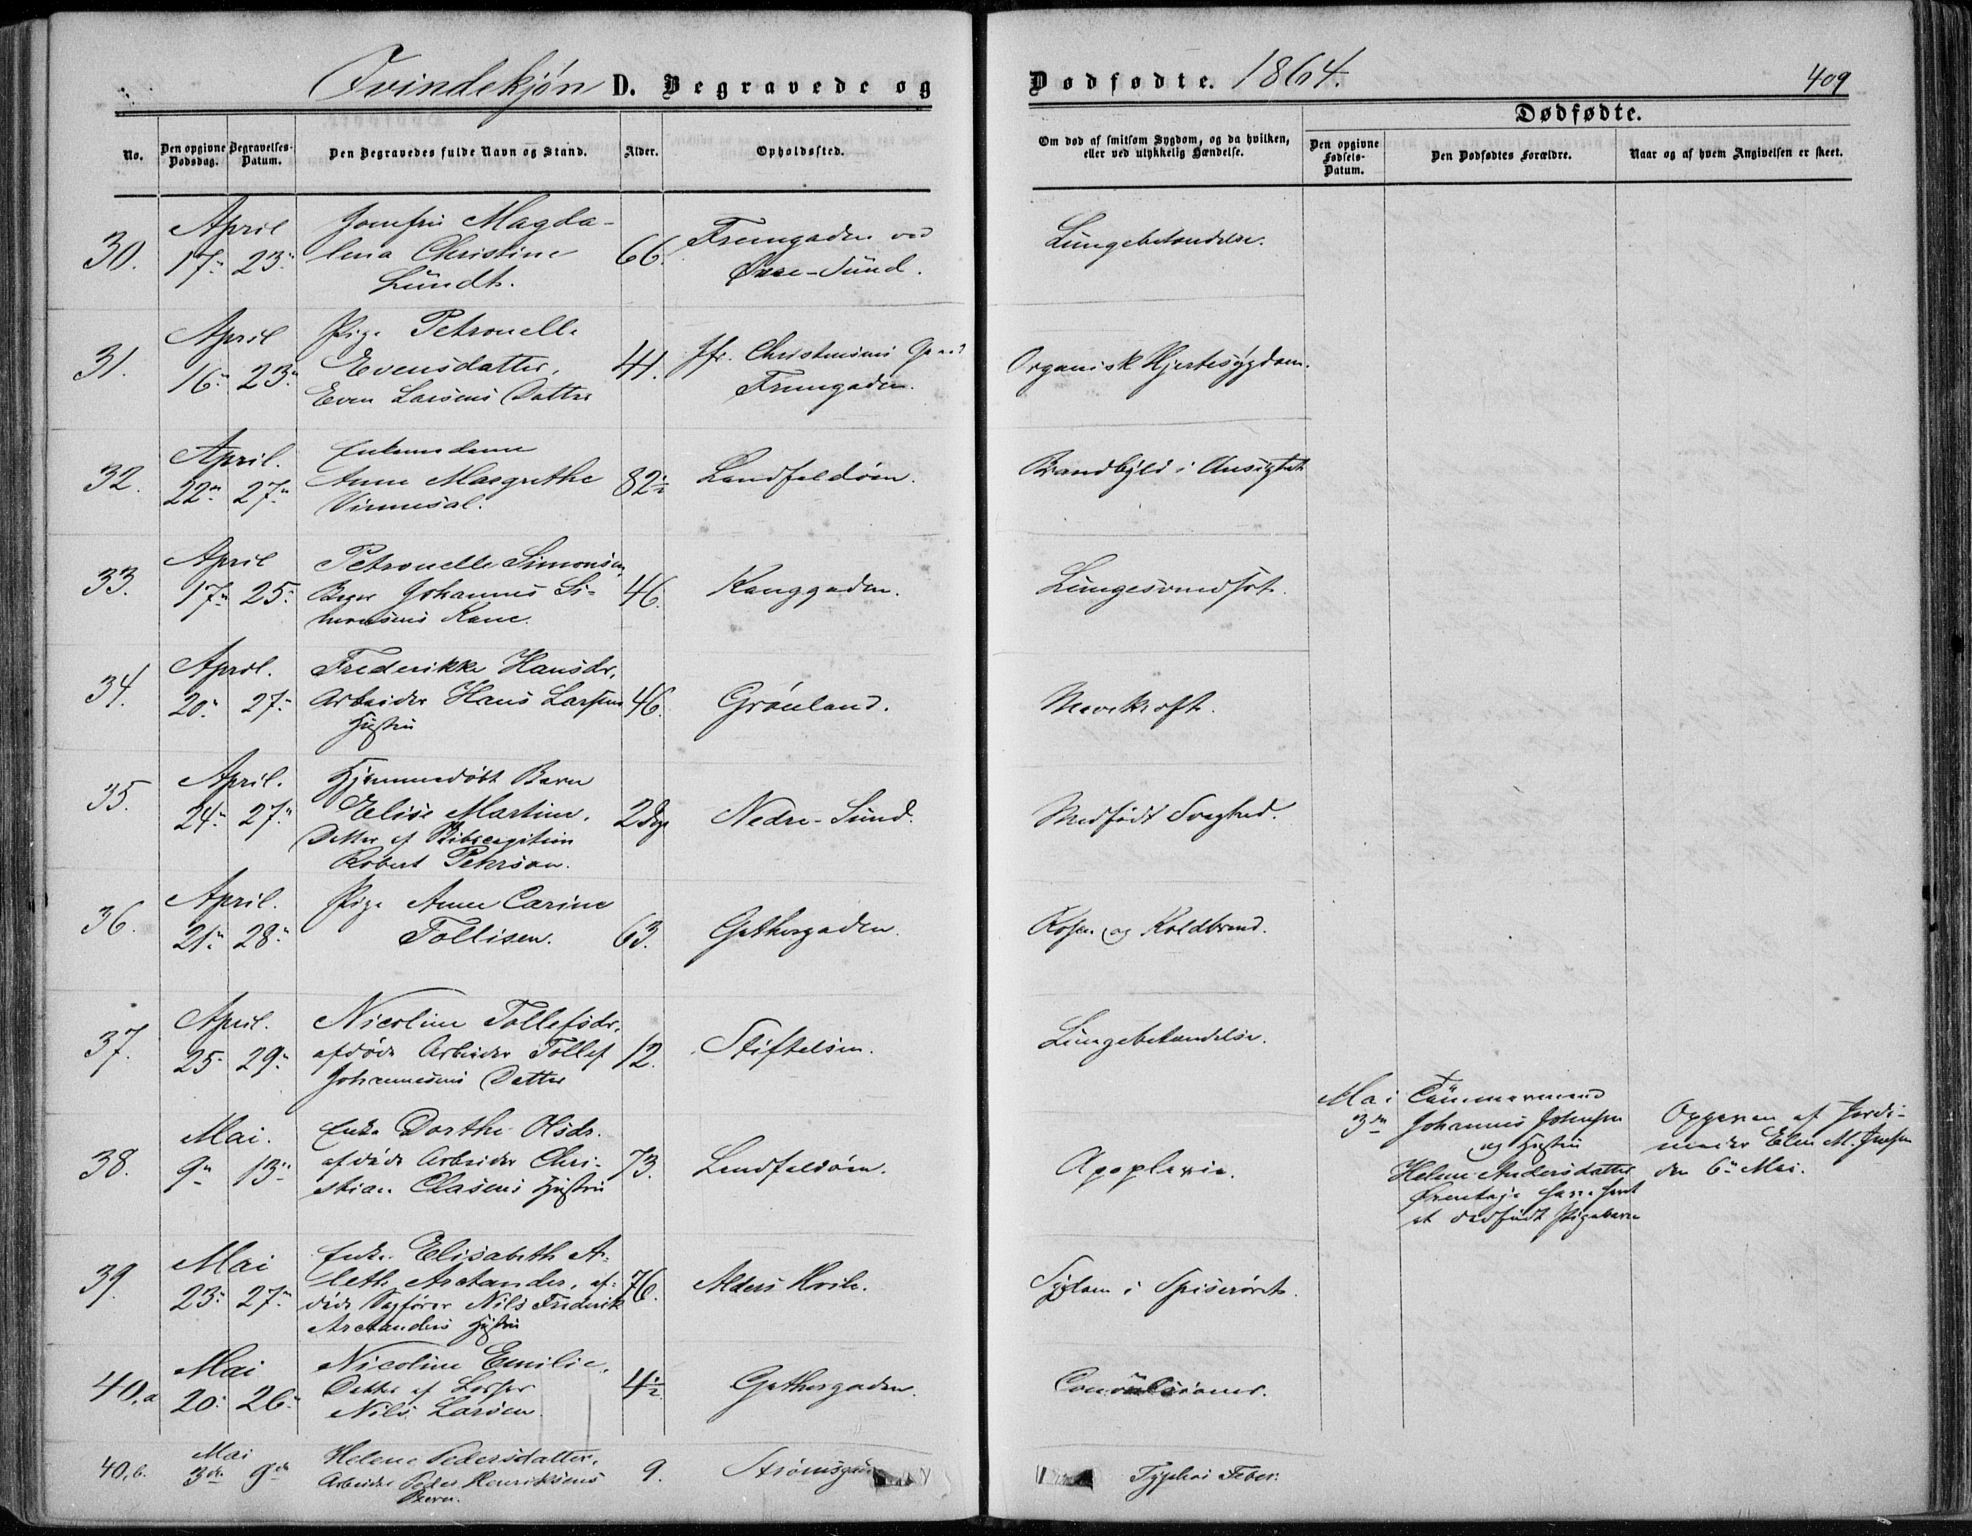 Qvindekjøn D. Begravede og
Dødfødte. 1864.
409
No.
Den opgivne Dødsdag.
Begravelses-Datum.
Den Begravedes fulde Navn og Stand.
Alder.
Opholdssted.
Om død af smitsom Sygdom, og da hvilken, eller ved ulykkelig Hændelse.
Dødfødte.
Den opgivne Fødsels-Datum.
Den Dødfødtes Forældre.
Naar og af hvem Angivelsen er skeet.
30.
April
17de 23de
Jomfru Magda-
lena Christine
Lundt.
66.
Tremgaden ved
Øvre-Sund.
Lungebetændelse.
31.
April
16de 23de
Pige Petronelle
Evensdatter,
Even Larsens Datter
41.
Jfr. Christensens
Tremgaden.
Organisk Hjertesygdom.
32.
April.
22de 27de
Enkemadame
Anne Margrethe
82½
Landfaldøen.
Brandbyld i Ansigtet
33.
April
17de 25de
Petronelle Simonsen,
Johannes Si-
monsens Kone.
46.
Konggaden.
Lungesvindsot.
34.
April.
20de 27de
Frederikke Hansdr.
Arbeider Hans Larsens
Hustru
46.
Grønland.
Mavekræft.
35.
April.
24de 27de
Hjemmedøbt Barn
Elise Martine,
Datter af Skibscapitain
Robert Petersen.
2 Dge
Nedre-Sund.
Medfødt Svaghed.
36.
April.
21de 28de
Pige Anne Carine
Tollisen.
63.
Gethergaden.
Rosen og Koldbrand.
37.
April.
25 29de
Nicoline Tollefsdr.
afdøde Arbeider Tollef
Johannesens Datter
12.
Stiftelsen.
Lungebetændelse.
38.
Mai.
9de 13de
Enke Dorthe Olsdr.
afdøde Arbeider Chri-
stian Clasens Hustru
73.
Landfaldøen.
Apoplexie.
Mai
3de
Tømmermand
Johannes Johnsen
og Hustru
Helene Andersdatter
et dødfødt Pigebarn
Opgiven af Jorde-
moder Elen M. Jensen
den 6te Mai.
39.
Mai
23de 27de
Enke Elisabeth A-
leth Arctander, af-
døde Sagfører Nils Frederik
Arctanders Hustru
76.
Alders Hvile.
Sygdom i Spiserøret.
40.a
Mai
20de 26de
Nicoline Emilie,
Datter af
Nils Larsen.
4½
Gethergaden.
Convulsioner.
40.b.
Mai
3die 9de
Helene Pedersdatter,
Arbeider Peder Henriksens
Barn.
9.
Typhoi Feber.